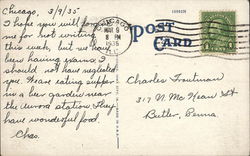 Chicago, 3/9/35
I hope you will forgive
me for not writing
this week, but we have
been having company
I should not have neglected
you. We are eating supper
in a beer garden near
the Wood station. They
have wonderful food.
Chas.
CHICAGO
MAR 9
8 PM
1935
POST
CARD
Charles Troutman
317 N. McKean St
Butler, Penna.